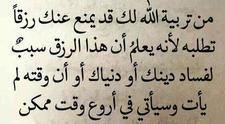 من تربية الله لك قد يمنع عنك رزقاً
تطلبه لأنه يعلمُ أن هذا الرزق سببٌ
لفساد دينك أو دنياك أو أن وقته لم
يأت وسيأتي في أروع وقت ممكن